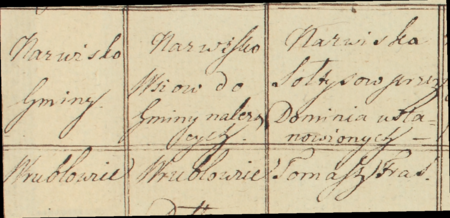 Nazwisko
Gminy.
Nazwisko
Wsiow do
Gminy należą
cych.
Nazwiska
Sołtysow przez
Dominia usta
nowionych —
Wrublowice
Wrublowice
Tomasz Fras.